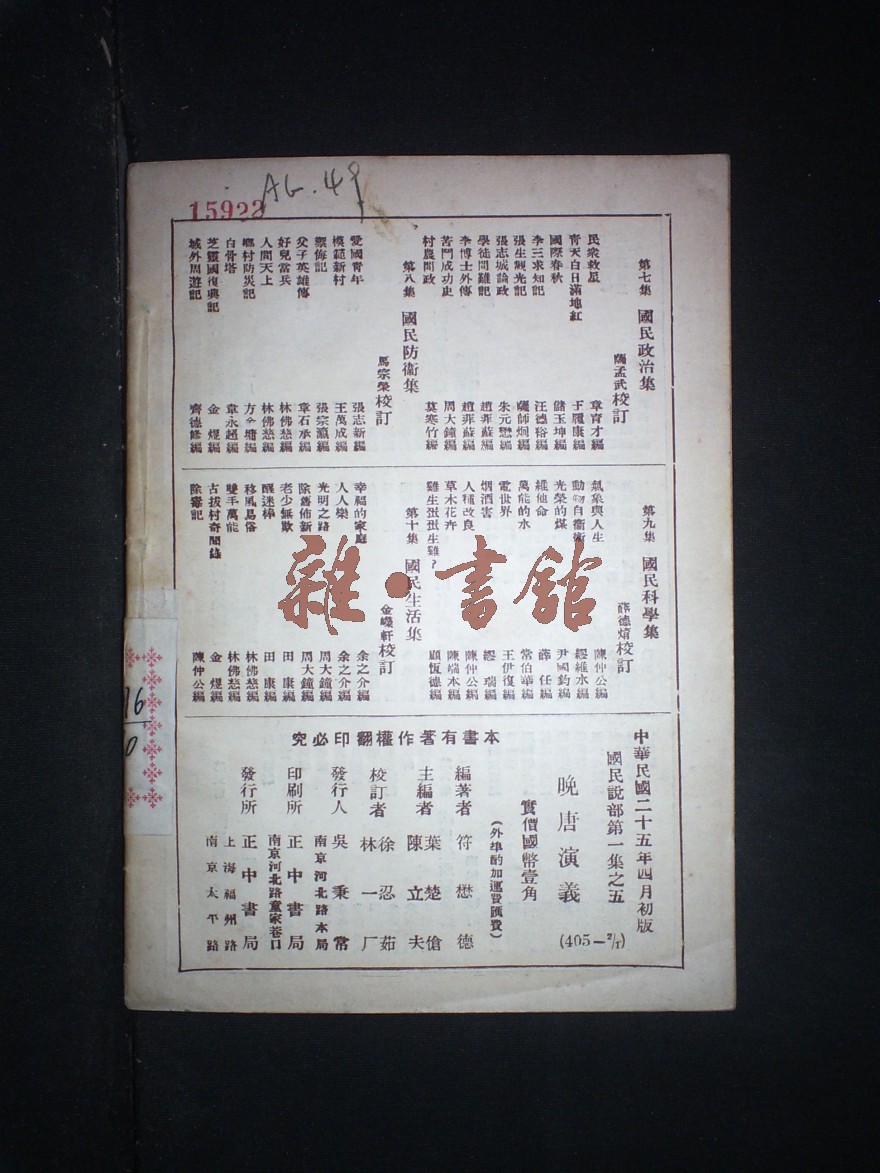 15923
AG.49
第七集 國民政治集
薩孟武校訂
民衆救星 章育才編
青天白日滿地紅 于履康編
國際春秋 儲玉坤編
李三求知記 汪德裕編
張生觀光記 薩師炯編
張志城論政 朱元懋編
學徒問難記 趙菲蘇編
李博士外傳 趙菲蘇編
苦鬥成功史 周大鐘編
村農問政 莫寒竹編
第八集 國民防衞集
馬宗榮校訂
愛國青年 張志新編
模範新村 王萬成編
禦侮記 張宗瀛編
父子英雄傳 章石承編
好兒當兵 林佛慈編
人間天上 林佛慈編
鄉村防災記
白骨塔 章永超編
芝靈國復興記 金煜編
域外周遊記 齊德修編
第九集 國民科學集
薛德焴校訂
氣象與人生 陳仲公編
動物自衞術 繆維水編
光榮的煤 尹國鈞編
維他命 薛任編
萬能的水 常伯華編
電世界 王伊復編
烟酒害 繆瑞編
人種改良 陳仲公編
草木花卉 陳端本編
雞生蛋蛋生雞? 顧恆德編
第十集 國民生活集
金嶸軒校訂
幸福的家庭 余之介編
人人樂 余之介編
光明之路 周大鐘編
除舊佈新 周大鐘編
老少無欺 田康編
醒迷棒 田康編
移風易俗 林佛慈編
雙手萬能 林佛慈編
古拔村奇聞錄 金煜編
除毒記 陳仲公編
雜·書館
16
0
中華民國二十五年四月初版
國民說部第一集之五
晚唐演義 (405—2/1)
實價國幣壹角
(外埠酌加運費匯費)
本書有著作權翻印必究
編著者 符懋德
主編者 葉楚傖
陳立夫
校訂者 徐忍茹
林一厂
發行人 吳秉常
南京河北路本局
印刷所 正中書局
南京河北路童家巷口
發行所 正中書局
上海福州路
南京太平路